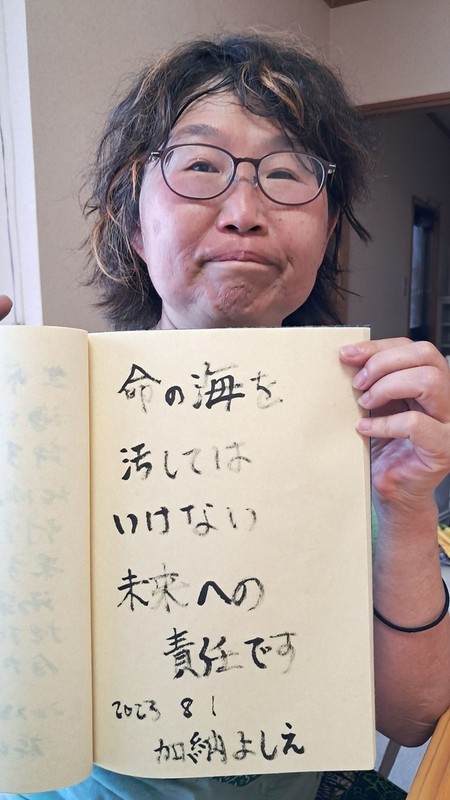 命の海を
汚しては
いけない
未来への
責任です
2023 8 1
加納よしえ